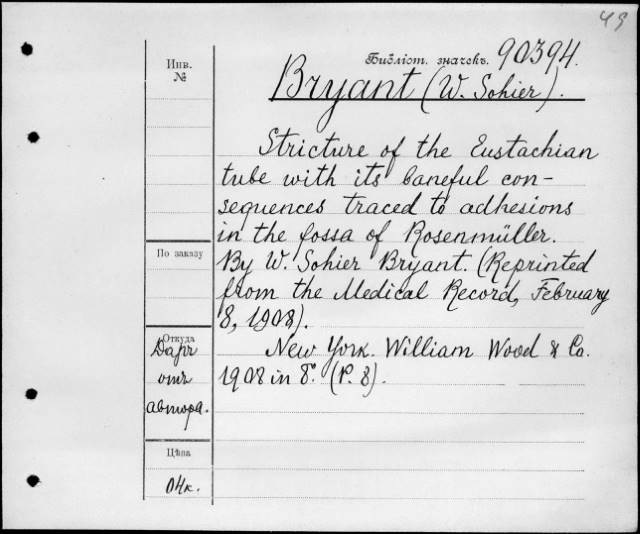 49
Инв.
№
Библіот. значекъ. 90394.
Bryant (W. Sohier).
Stricture of the Eustachian
tube with its baneful con-
sequences traced to adhesions
in the fossa of Rosenmüller.
По заказу
By W. Sohier Bryant. (Reprinted
from the Medical Record, February
8, 1908).
Откуда
Даръ
отъ
автора.
New York. William Wood & Co.
1908 in 8°. (P. 8).
Цѣна
04к.